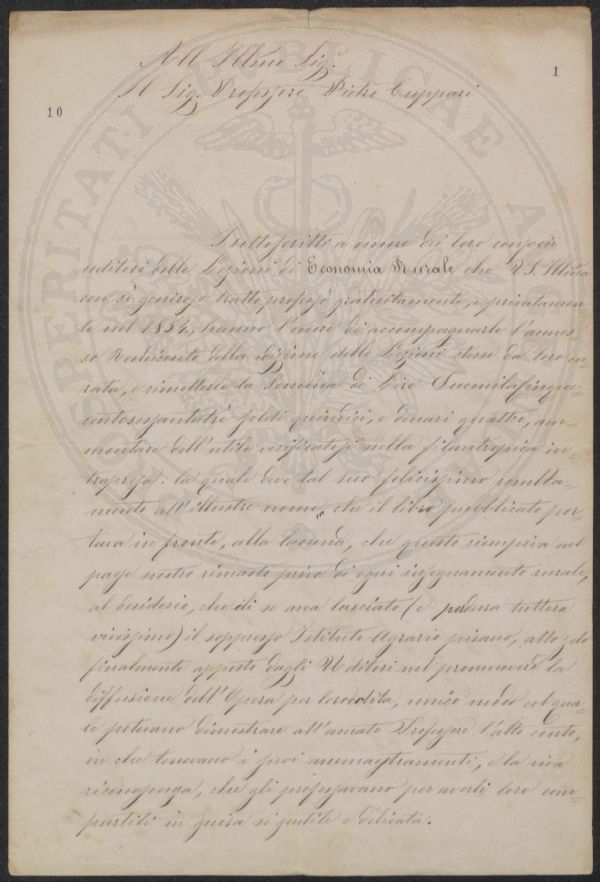 All' Illmo Sigr.
Il Sig. Professore Pietro Cuppari
1
10
I sottoscritti a nome dei loro compagni
uditori delle Lezioni di Economia Rurale che V. S. Illma
con sì generoso tratto professò gratuitamente, e privatamen=
te nel 1852, hanno l'onore di accompagnarle l'annes=
so Rendiconto della edizione delle Lezioni stesse da loro cu=
rata, e rimetterle la Somma di Lire Duemilacinque=
centosessantatrè soldi quindici, e denari quattro, am=
montare dell'utile verificatosi nella filantropica in=
trapresa: la quale deve tal suo felicissimo resulta=
mento all'illustre nome, che il libro pubblicato por=
tava in fronte, alla lacuna, che questo riempiva nel
paese nostro rimasto privo di ogni insegnamento rurale,
al desiderio, che di se avea lasciato (e perdura tuttora
vivissimo) il soppresso Istituto Agrario pisano, allo zelo
finalmente apposto dagli Uditori nel promuovere la
diffusione dell'Opera per loro edita, unico modo col qua=
le potevano dimostrare all'amato Professore l'alto conto,
in che tenevano i suoi ammaestramenti, e la viva
riconoscenza, che gli professavano per averli loro com=
partiti in guisa sì gentile e delicata.